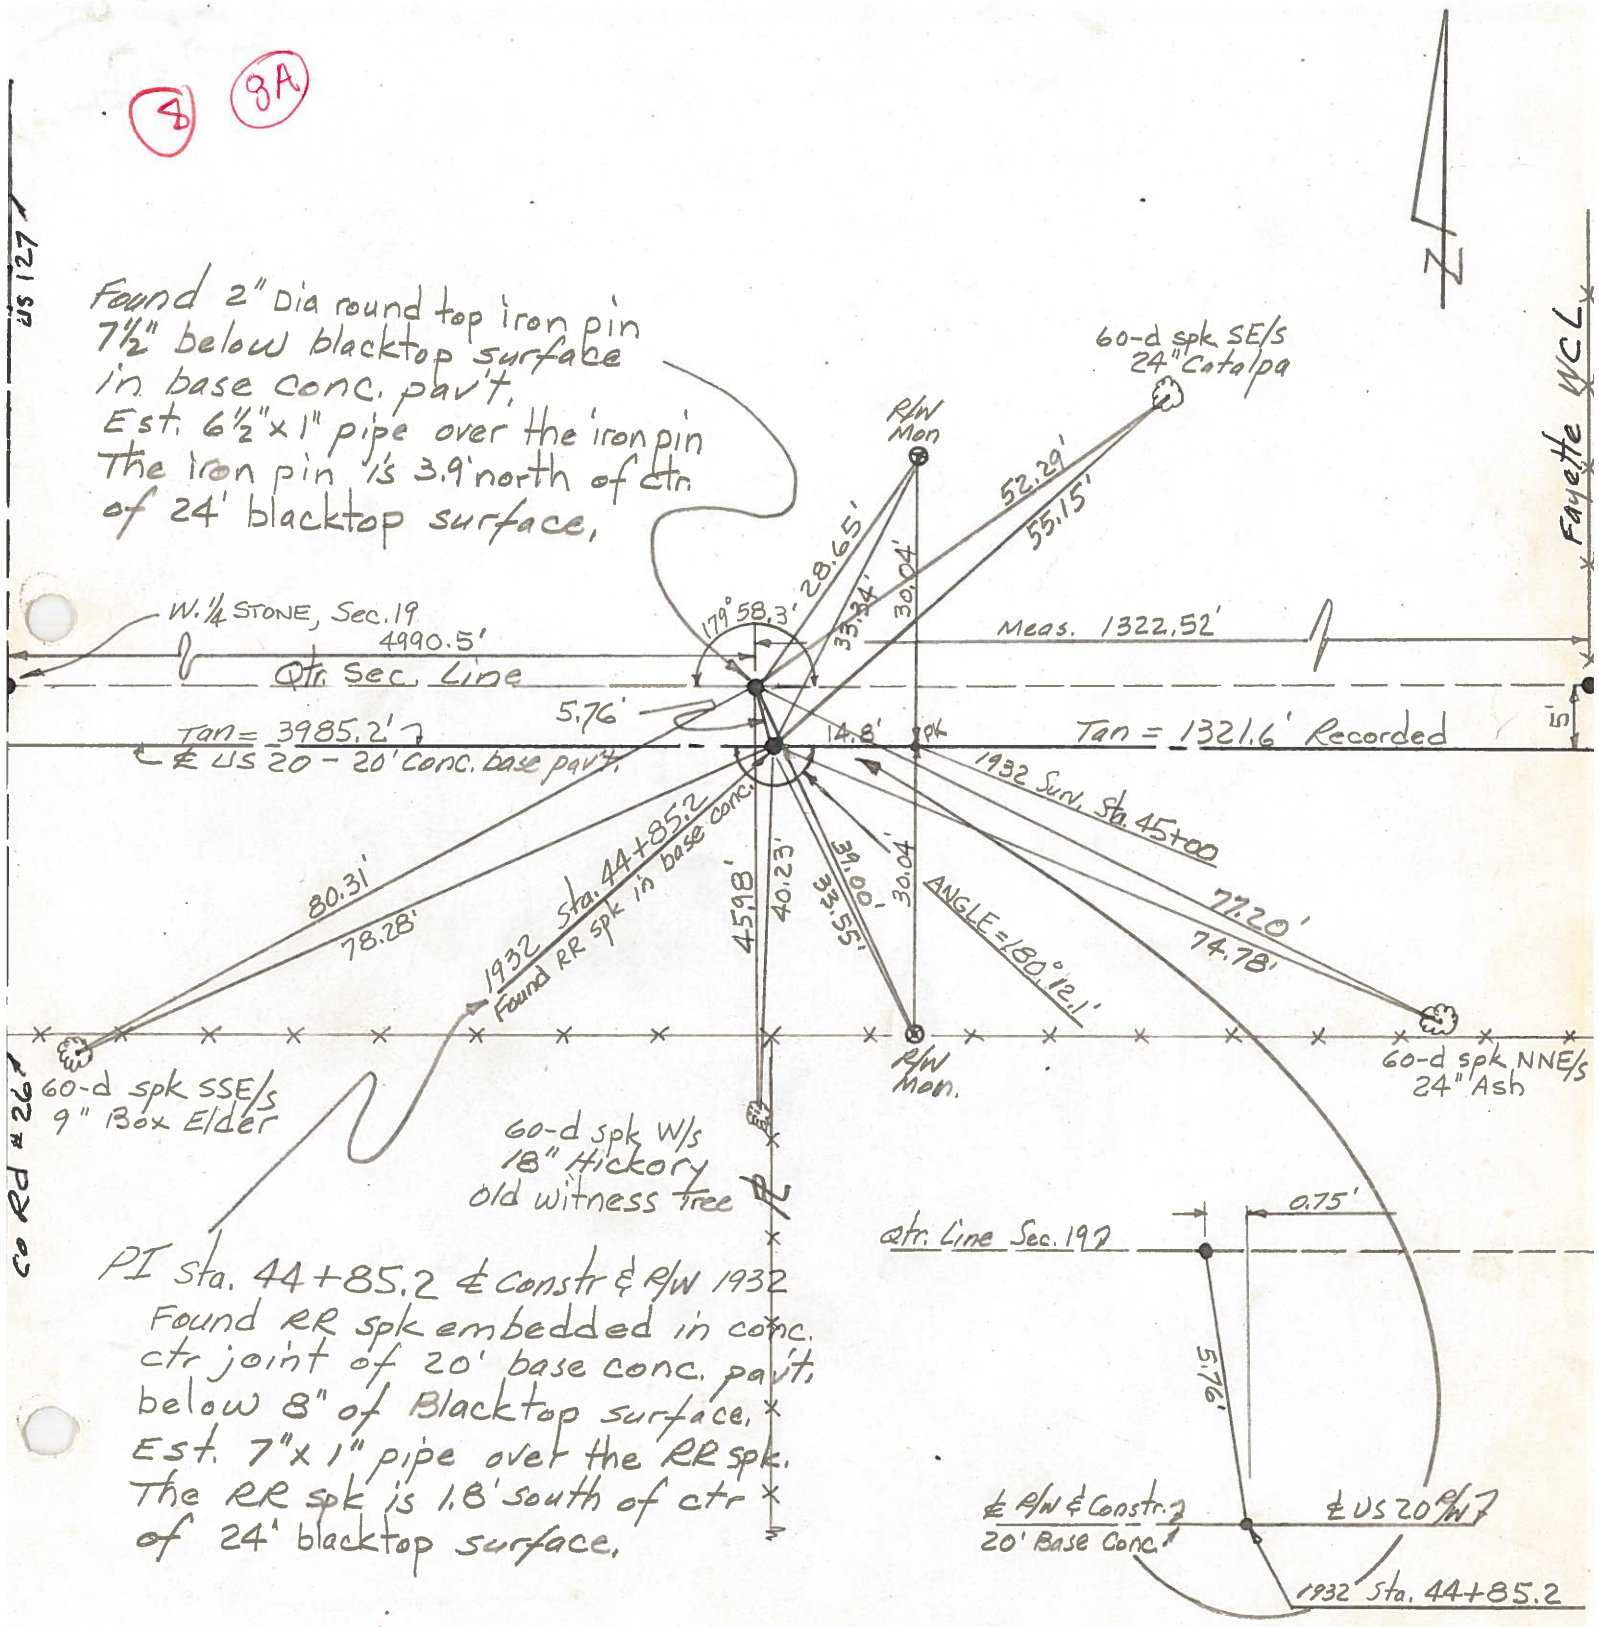 8
8A
US 127
Found 2" Dia round top iron pin
7½" below blacktop surface
in base conc. pav't.
Est. 6½" x 1" pipe over the iron pin
The iron pin is 3.9' north of ctr.
of 24' blacktop surface.
60-d spk SE/s
24" Catalpa
R/W
Mon
N
Fayette WCL
52.29'
55.15'
28.65'
33.34'
30.04'
179° 58.3'
W. 1/4 STONE, Sec. 19
4990.5'
Meas. 1322.52'
Qtr. Sec. Line
5.76'
5'
Tan = 3985.2'
14.8'
PK
Tan = 1321.6' Recorded
℄ US 20 - 20' Conc. base pav't.
1932 Surv. Sta. 45+00
80.31'
78.28'
1932 Sta. 44+85.2
Found RR spk in base conc.
45.98'
40.23'
39.00'
33.55'
30.04'
ANGLE = 180° 12.1'
77.20'
74.78'
Co Rd #26
60-d spk SSE/s
9" Box Elder
60-d spk W/s
18" Hickory
old witness Tree
R/W
Mon.
60-d spk NNE/s
24" Ash
PI Sta. 44+85.2 ℄ Constr & R/W 1932
Found RR spk embedded in conc.
ctr joint of 20' base conc. pav't.
below 8" of Blacktop surface.
Est. 7" x 1" pipe over the RR spk.
The RR spk is 1.8' south of ctr
of 24' blacktop surface.
0.75'
Qtr. Line Sec. 19
5.76'
℄ R/W & Constr.
20' Base Conc.
℄ US 20 R/W
1932 Sta. 44+85.2